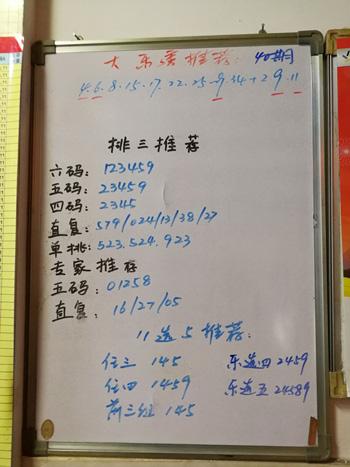 大乐透推荐: 40期
4.6.8.15.17.22.25-9.34+2 9.11
排三推荐
六码: 123459
五码: 23459
四码: 2345
直复: 579/024/13/38/27
单挑: 523.524.923
专家推荐
五码: 01258
直复: 16/27/05
11选5推荐:
任三 145 乐选四 2459
任四 1459 乐选五 24589
前三组 145